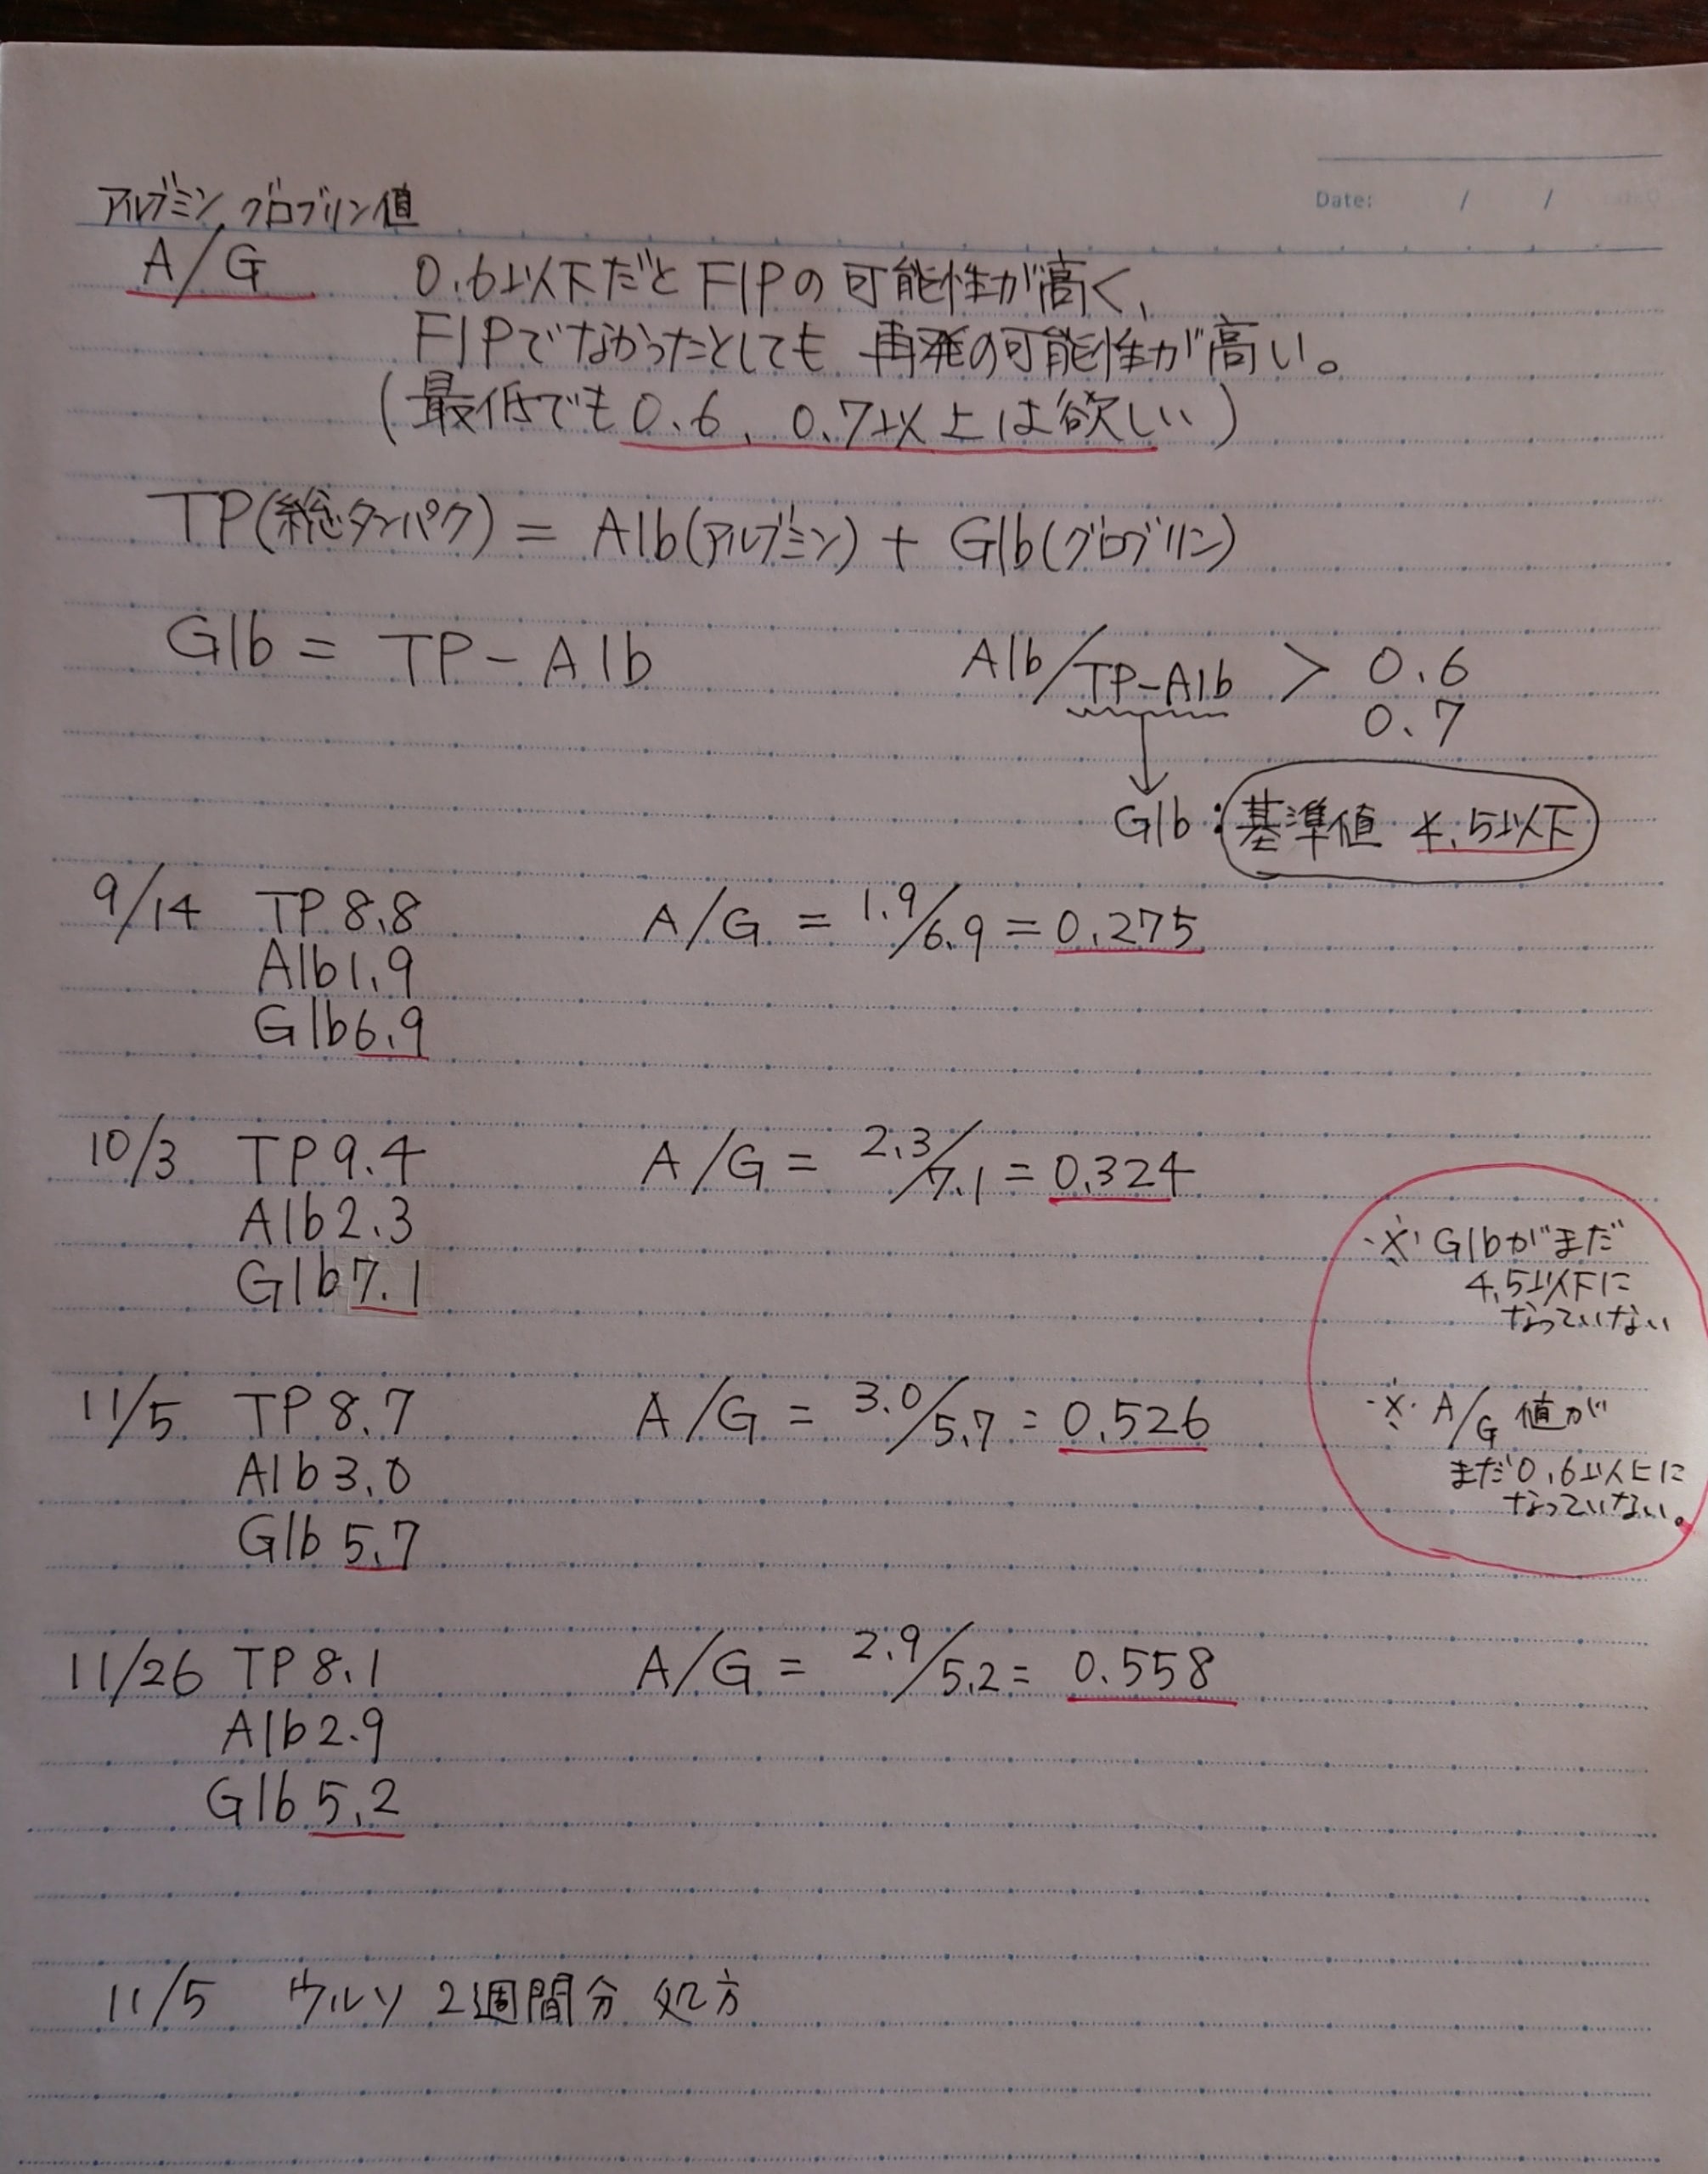 Date: / /
アルブミン グロブリン値
A/G 0.6以下だとFIPの可能性が高く、
FIPでなかったとしても 再発の可能性が高い。
(最低でも0.6、0.7以上は欲しい)
TP(総タンパク) = Alb(アルブミン) + Glb(グロブリン)
Glb = TP-Alb
Alb/TP-Alb > 0.6
0.7
Glb: 基準値 4.5以下
9/14 TP 8.8 A/G = 1.9/6.9 = 0.275
Alb1.9
Glb6.9
10/3 TP9.4 A/G = 2.3/7.1 = 0.324
Alb2.3
Glb7.1
※ Glbがまだ
4.5以下に
なっていない
11/5 TP8.7 A/G = 3.0/5.7 = 0.526
Alb3.0
Glb 5.7
※ A/G 値が
まだ0.6以上に
なっていない。
11/26 TP8.1 A/G = 2.9/5.2 = 0.558
Alb2.9
Glb 5.2
11/5 ウルソ 2週間分 処方